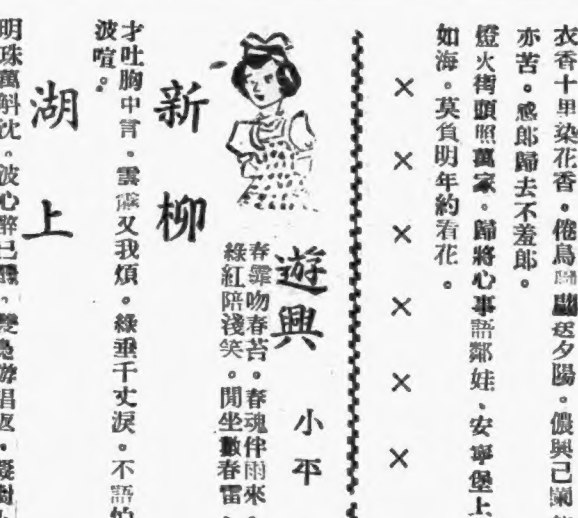 衣香十里染花香。倦鳥歸送夕陽。儂興已闌
亦苦。感郎歸去不羞郎。
燈火街頭照萬家。歸將心事語鄰娃、安寧堡上
如海。莫負明年約看花。
× × × × × ×
遊興 小平
春霏吻春苔。春魂伴雨來。
綠紅陪淺笑。閒坐數春雷、
新柳
才吐胸中言。雲又我煩。綠垂千丈淚。不語怕
波喧。
湖上
明珠萬斛沈。波心醉已。雙梟游倡返。凝對